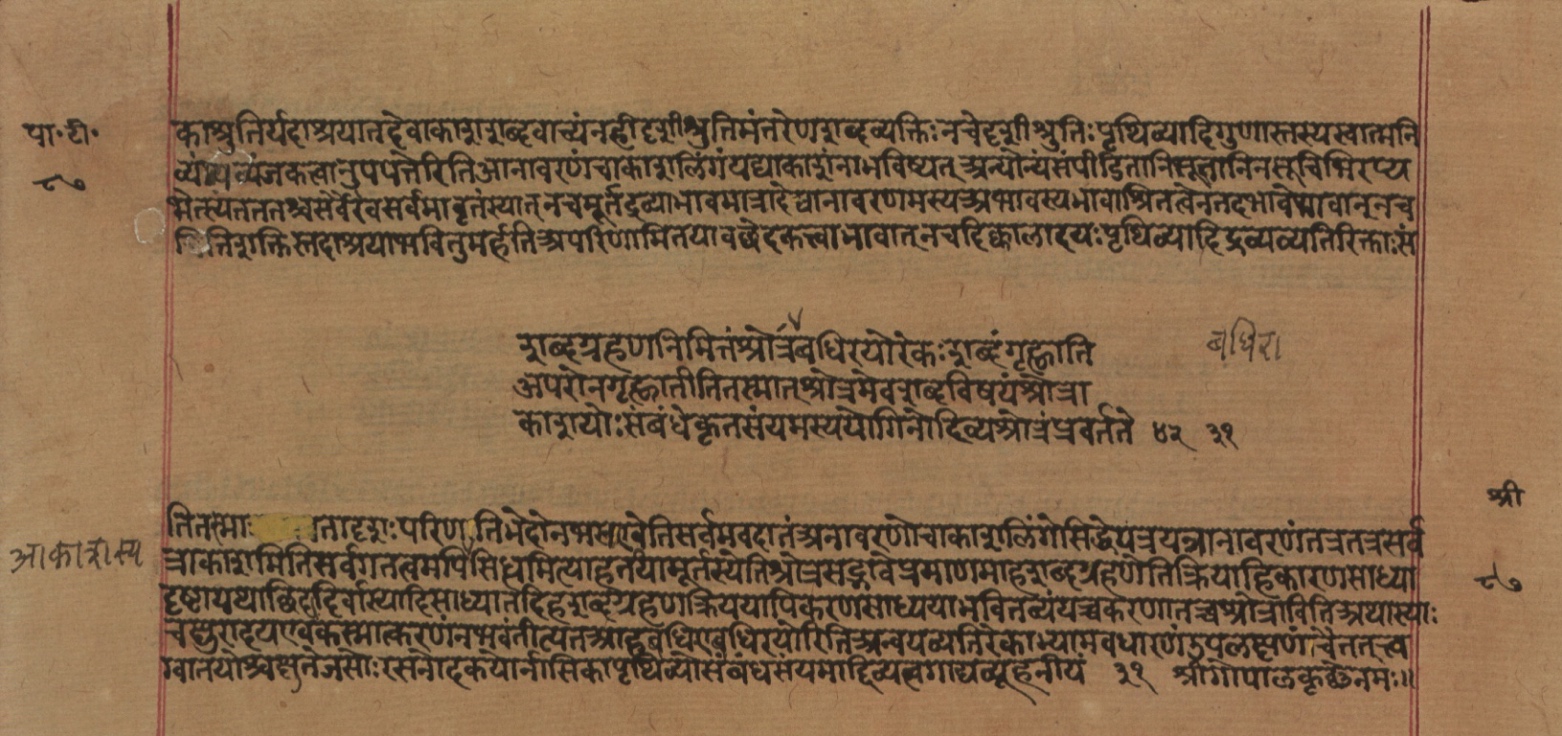 पा॰ टी॰
८७
काश्रुतिर्यदाश्रयातदेवाकाशशब्दवाच्यंनहीदृशीश्रुतिमंतरेणशब्दव्यक्तिःनचेदृशीश्रुतिःपृथिव्यादिगुणास्तस्यस्वात्मनि
व्यंजकत्वानुपपत्तेरितिआनावरणंचाकाशलिंगंयद्याकाशंनाभविष्यत्अन्योन्यसंपीडितानिमूर्त्तानिनसूचिभिरप्य
भेत्स्यतततश्चसर्वैरेवसर्वमावृतंस्यात्नचमूर्तद्रव्याभावमात्रादेवानावरणमस्यअभावस्यभावाश्रितत्वेनतदभावेभावात्नच
चितिशक्तिस्तदाश्रयाभवितुमर्हतिअपरिणामितयावछेदकत्वाभावात्नचदिक्कालादयःपृथिव्यादिद्रव्यव्यतिरिक्ताःसं
शब्दग्रहणनिमित्तंश्रोत्रंबधिरयोरेकःशब्दंगृह्णाति
बधिरा
अपरोनगृह्णातीतितस्मात्श्रोत्रमेवशब्दविषयंश्रोत्रा
काशयोःसंबंधेकृतसंयमस्ययोगिनोदिव्यंश्रोत्रंप्रवर्तते ४२ ३१
श्री
तितस्माः तादृशःपरिणतिभेदोनभसएवेतिसर्वमवदातंअनावरणेचाकाशलिंगेसिद्धेयत्रयत्रानावरणंतत्रतत्रसर्व
आकाशस्य
त्राकाशमितिसर्वगतत्वमपिसिध्दमित्याहतथामूर्तस्येतिश्रोत्रसद्भावेप्रमाणमाहशब्दग्रहणेतिक्रियाहिकारणसाध्या
८७
दृष्टायथाछिदादिर्वास्यादिसाध्यातदिहशब्दग्रहणक्रिययापिकरणसाध्ययाभवितव्यंयच्चकरणंतच्चश्रोत्रमितिअथास्याः
चक्षुरादयएवकस्मात्करणंनभवंतीत्यतआहबधिराबधिरयोरितिअन्वयव्यतिरेकाभ्यामवधारणंउपलक्षणंचैतत्त्व
ग्वातयोश्चक्षुस्तेजसोःरसनोदकयोर्नासिकापृथिव्योःसंबंधसंयमाद्दिव्यत्वगाद्यप्यूहनीयं ३१ श्रीगोपालकृष्णेनमः॥